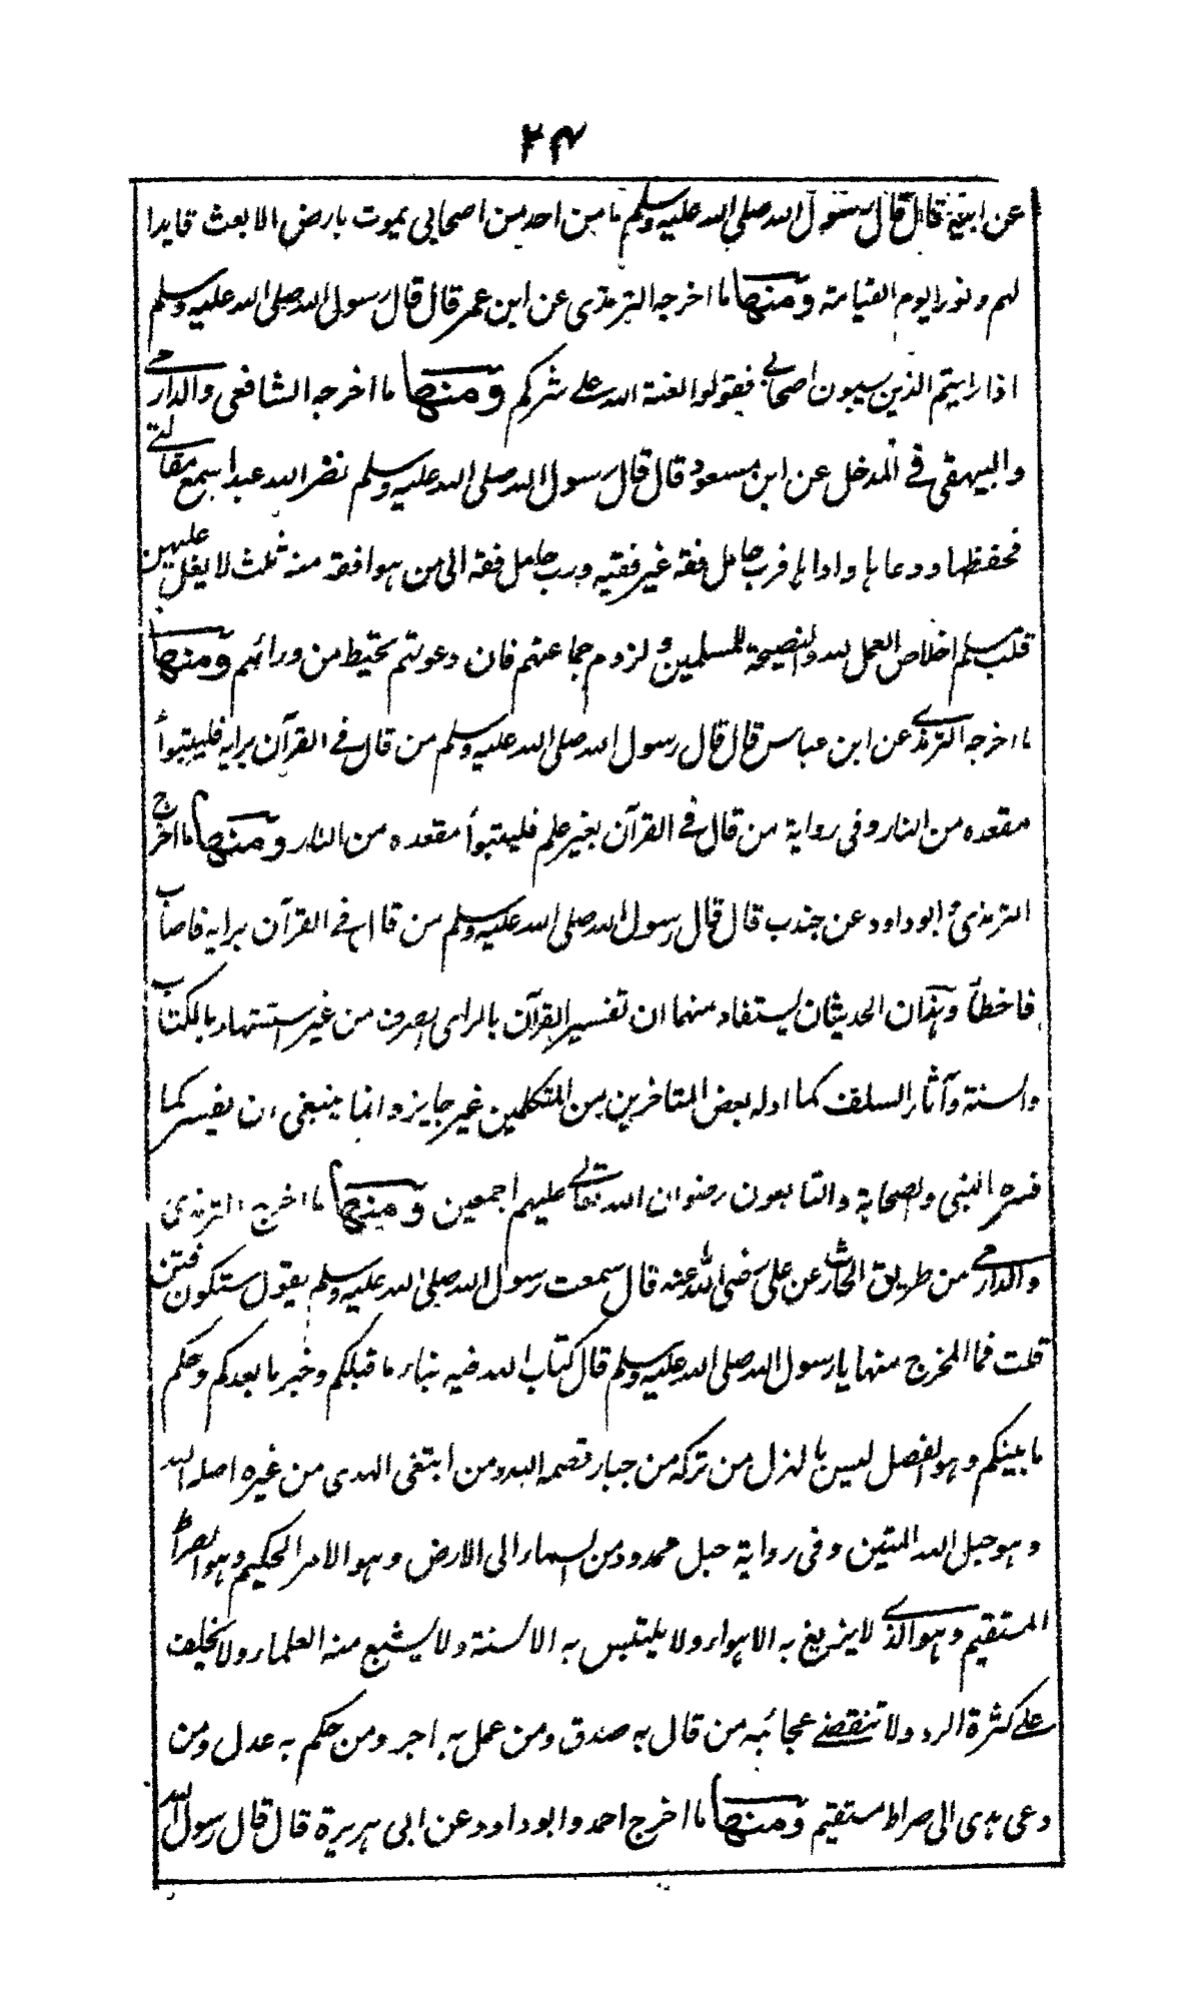 ۲۴
عن ابيه قال قال رسول الله صلى الله عليه وسلم ما من احد من اصحابى يموت بارض الا بعث قايدا
لهم ونورا يوم القيامة ومنها ما اخرجه الترمذى عن ابن عمر قال قال رسول الله صلى الله عليه وسلم
اذا رايتم الذين يسبون اصحابى فقولوا لعنة الله على شركم ومنها ما اخرجه الشافعى والدارمى
والبيهقى فى المدخل عن ابن مسعود قال قال رسول الله صلى الله عليه وسلم نضر الله عبدا سمع مقالتى
فحفظها ووعاها واداها فرب حامل فقه غير فقيه ورب حامل فقه الى من هو افقه منه ثلث لا يغل عليهن
قلب مسلم اخلاص العمل لله والنصيحة للمسلمين ولزوم جماعتهم فان دعوتهم تحيط من ورائهم ومنها
ما اخرجه الترمذى عن ابن عباس قال قال رسول الله صلى الله عليه وسلم من قال فى القرآن برايه فليتبوأ
مقعده من النار وفى رواية من قال فى القرآن بغير علم فليتبوأ مقعده من النار ومنها ما اخرج
الترمذى وابو داود عن جندب قال قال رسول الله صلى الله عليه وسلم من قال فى القرآن برايه فاصاب
فاخطأ وهذان الحديثان يستفاد منهما ان تفسير القرآن بالراى الصرف من غير استشهاد بالكتاب
والسنة وآثار السلف كما ادله بعض المتاخرين من المتكلمين غير جايز وانما ينبغى ان يفسر كما
فسره النبى والصحابة والتابعون رضوان الله تعالى عليهم اجمعين ومنها ما اخرج الترمذى
والدارمى من طريق الحارث عن على رضى الله عنه قال سمعت رسول الله صلى الله عليه وسلم يقول ستكون فتن
قلت فما المخرج منها يا رسول الله صلى الله عليه وسلم قال كتاب الله فيه نباء ما قبلكم وخبر ما بعدكم وحكم
ما بينكم وهو الفصل ليس بالهزل من تركه من جبار قصمه الله ومن ابتغى الهدى من غيره اضله الله
وهو حبل الله المتين وفى رواية حبل ممدود من السماء الى الارض وهو الامر الحكيم وهو الصراط
المستقيم وهو الذى لا يزيغ به الاهواء ولا يلتبس به الالسنة ولا يشبع منه العلماء ولا يخلق
على كثرة الرد ولا تنقضى عجائبه من قال به صدق ومن عمل به اجر ومن حكم به عدل ومن
دعى هدى الى صراط مستقيم ومنها ما اخرج احمد وابو داود عن ابى هريرة قال قال رسول الله